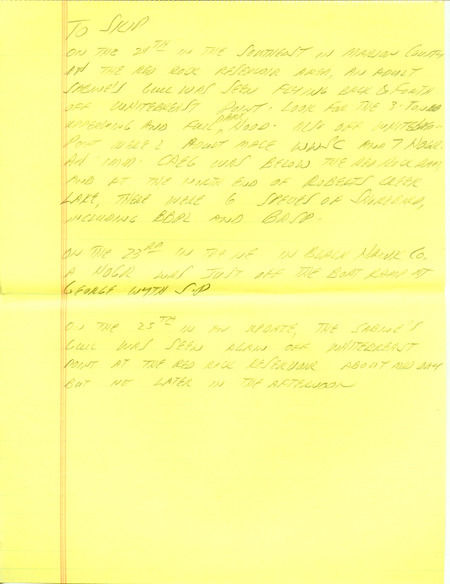 To Skip
On the 24th in the southeast in Marion County
at the Red Rock Reservoir area, an adult
Sabine's Gull was seen flying back & forth
off Whitebreast Point. Look for the 3-toned
upperwing and full, dark, hood. Also off Whitebreast
Point were 2 adult male WWSC and 7 HOGR.
An imm. CAEG was below the Red Rock Dam,
and at the north end of Roberts Creek
Lake, there were 6 species of shorebird,
including BBPL and BASA.
On the 23rd in the NE in Black Hawk Co.
a HOGR was just off the boat ramp at
George Wyth S.P.
On the 25th in an update, the Sabine's
Gull was seen again off Whitebreast
Point at the Red Rock Reservoir about mid day
but not later in the afternoon